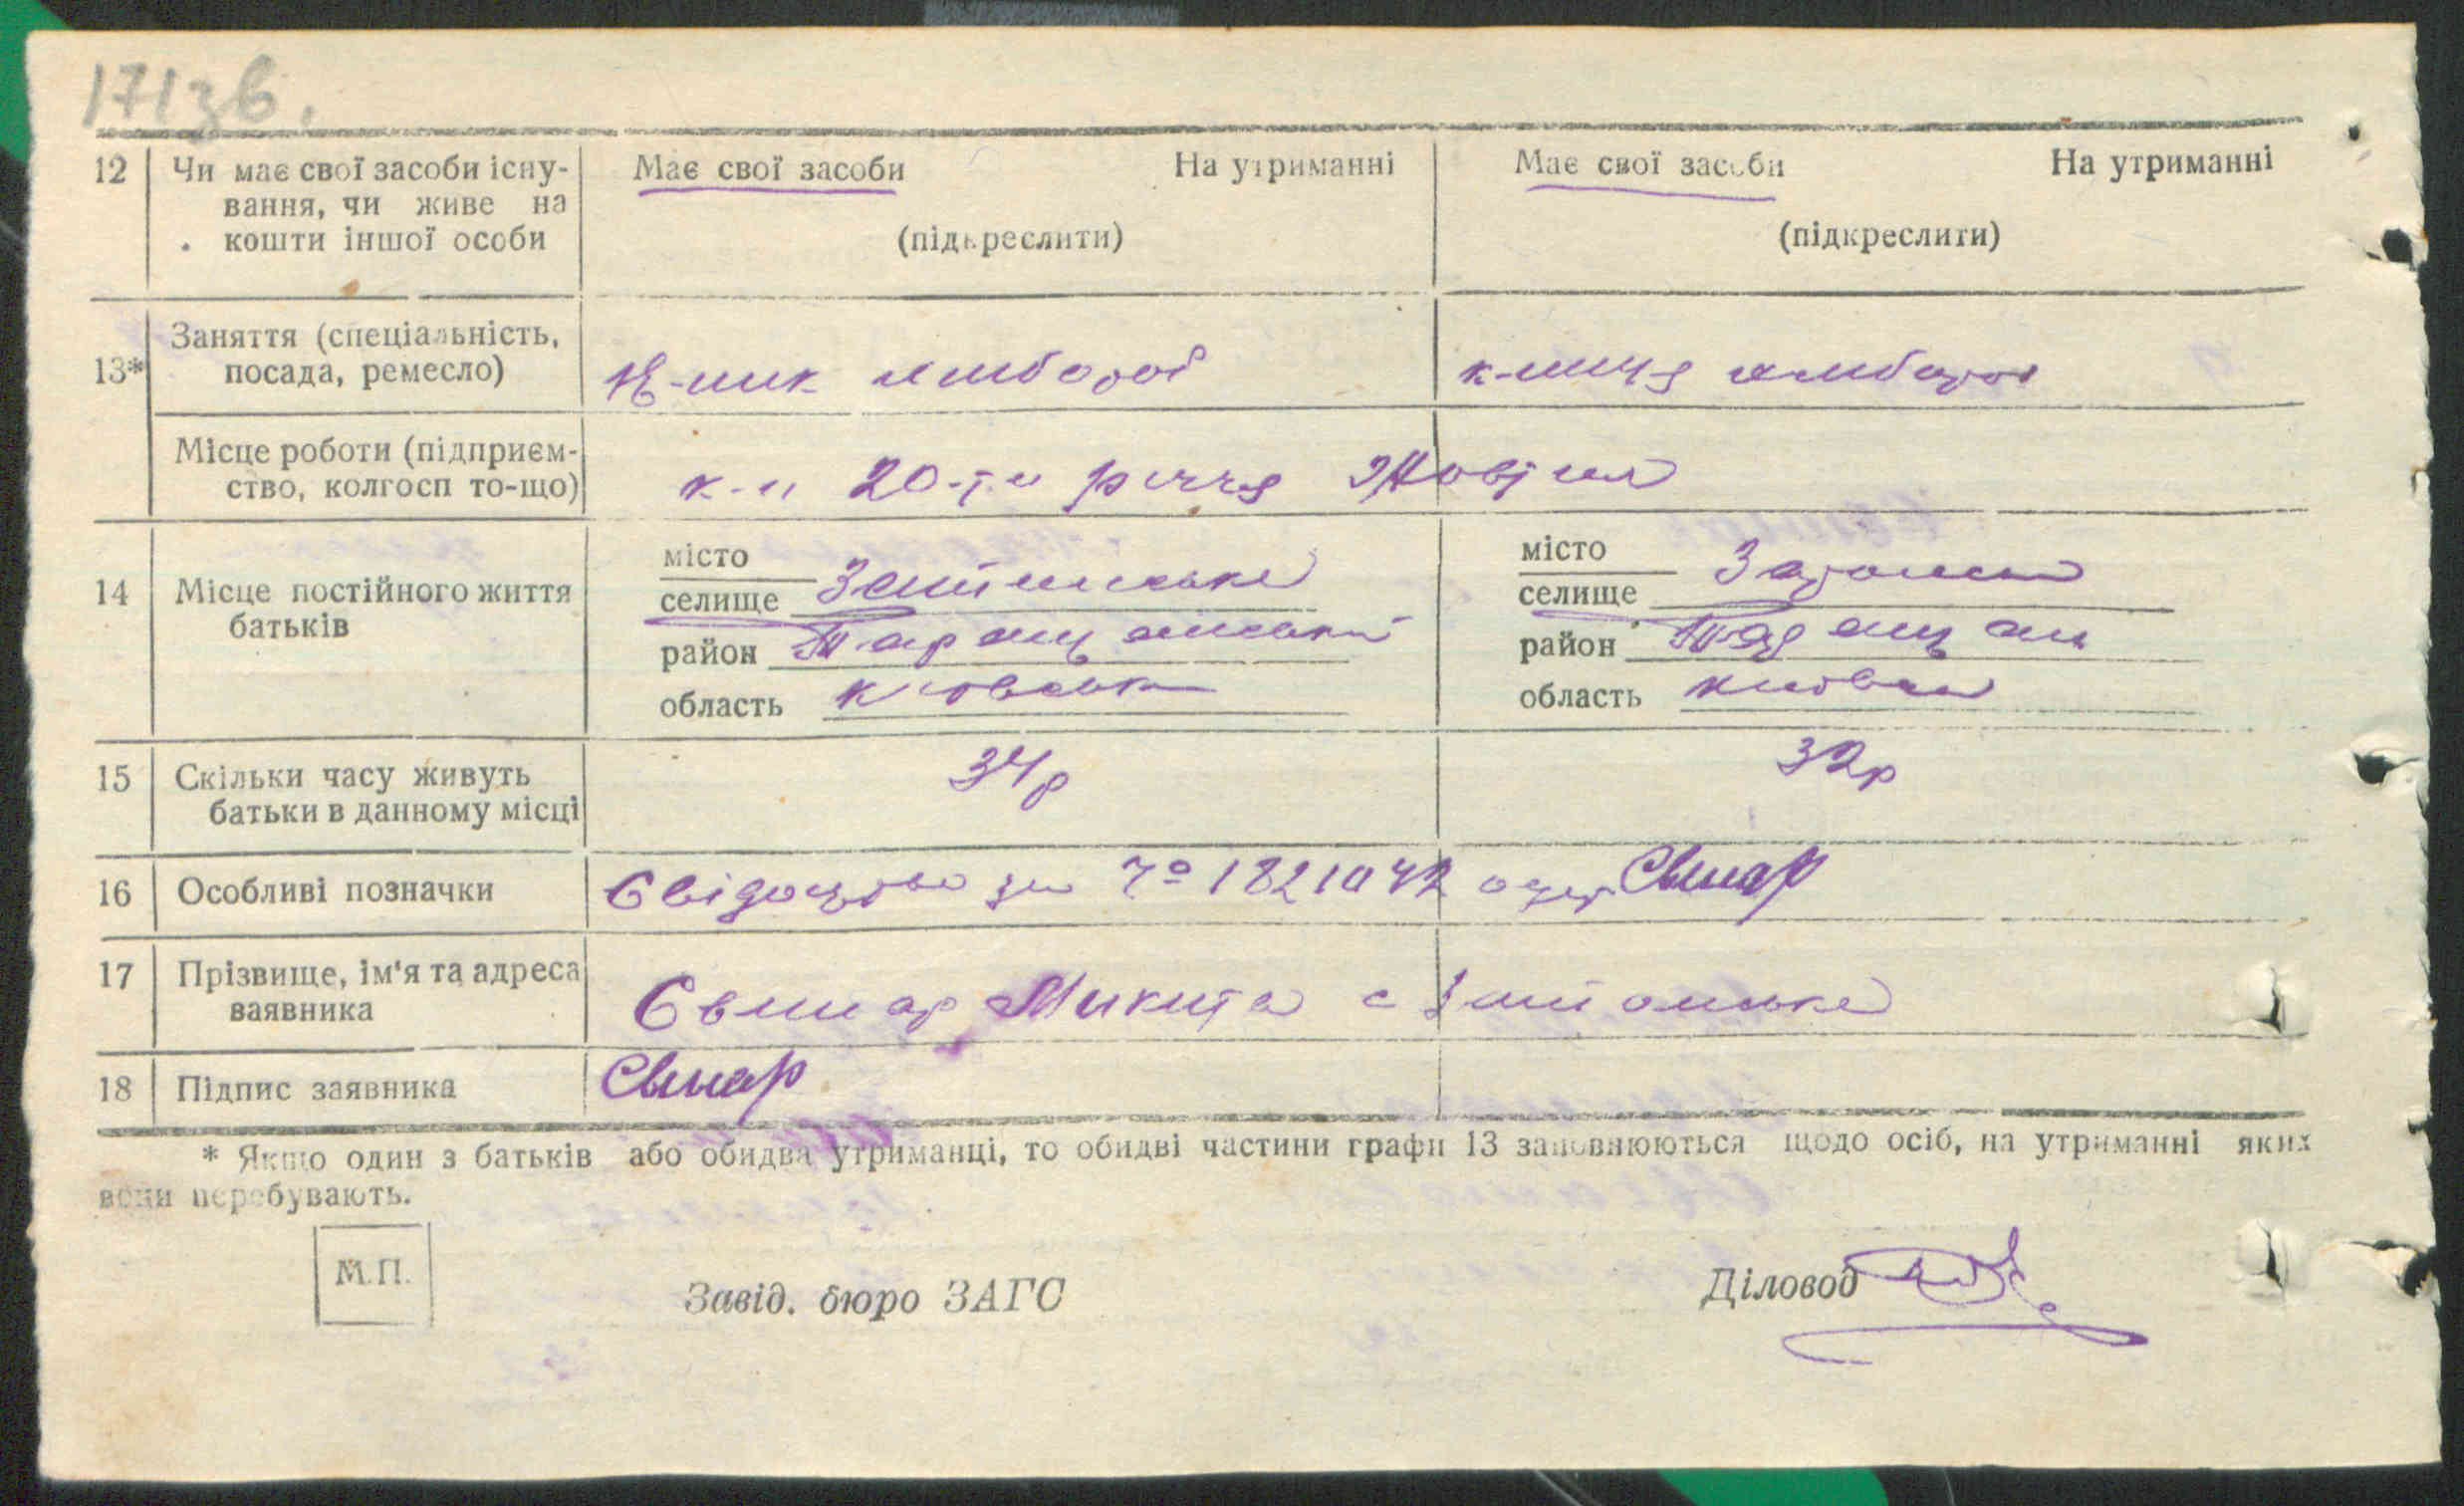 171зв.
12 Чи має свої засоби існу-
вання, чи живе на
кошти іншої особи
Має свої засоби На утриманні
(підкреслити)
Має свої засоби На утриманні
(підкреслити)
13* Заняття (спеціальність,
посада, ремесло)
к-ник хлібороб
к-ниця хлібороб
Місце роботи (підприєм-
ство, колгосп то-що)
к-п 20-ти річчя Жовтня
14 Місце постійного життя
батьків
місто
селище
район Таращанський
область Київськ
місто
селище
район Таращан
область Київськ
15 Скільки часу живуть
батьки в данному місці
34р
32р
16 Особливі позначки
Свідоцтво за № 1821042 Свинар
17 Прізвище, ім'я та адреса
заявника
Свинар Микита с
18 Підпис заявника
Свинар
* Якщо один з батьків або обидва утриманці, то обидві частини графи 13 заповнюються щодо осіб, на утриманні яких
вони перебувають.
М.П.
Завід. бюро ЗАГС
Діловод